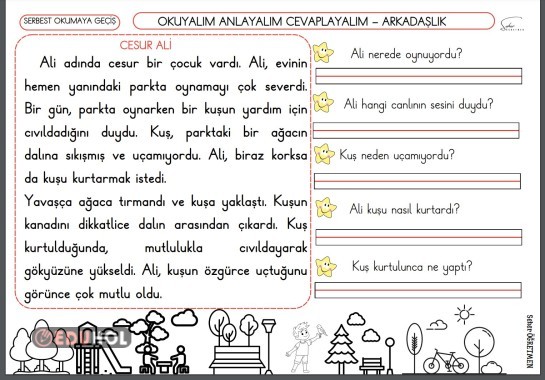 SERBEST OKUMAYA GEÇİŞ
OKUYALIM ANLAYALIM CEVAPLAYALIM – ARKADAŞLIK
CESUR ALİ
Ali adında cesur bir çocuk vardı. Ali, evinin
hemen yanındaki parkta oynamayı çok severdi.
Bir gün, parkta oynarken bir kuşun yardım için
cıvıldadığını duydu. Kuş, parktaki bir ağacın
dalına sıkışmış ve uçamıyordu. Ali, biraz korksa
da kuşu kurtarmak istedi.
Yavaşça ağaca tırmandı ve kuşa yaklaştı. Kuşun
kanadını dikkatlice dalın arasından çıkardı. Kuş
kurtulduğunda, mutlulukla cıvıldayarak
gökyüzüne yükseldi. Ali, kuşun özgürce uçtuğunu
görünce çok mutlu oldu.
Ali nerede oynuyordu?
Ali hangi canlının sesini duydu?
Kuş neden uçamıyordu?
Ali kuşu nasıl kurtardı?
Kuş kurtulunca ne yaptı?
SeherÖĞRETMEN